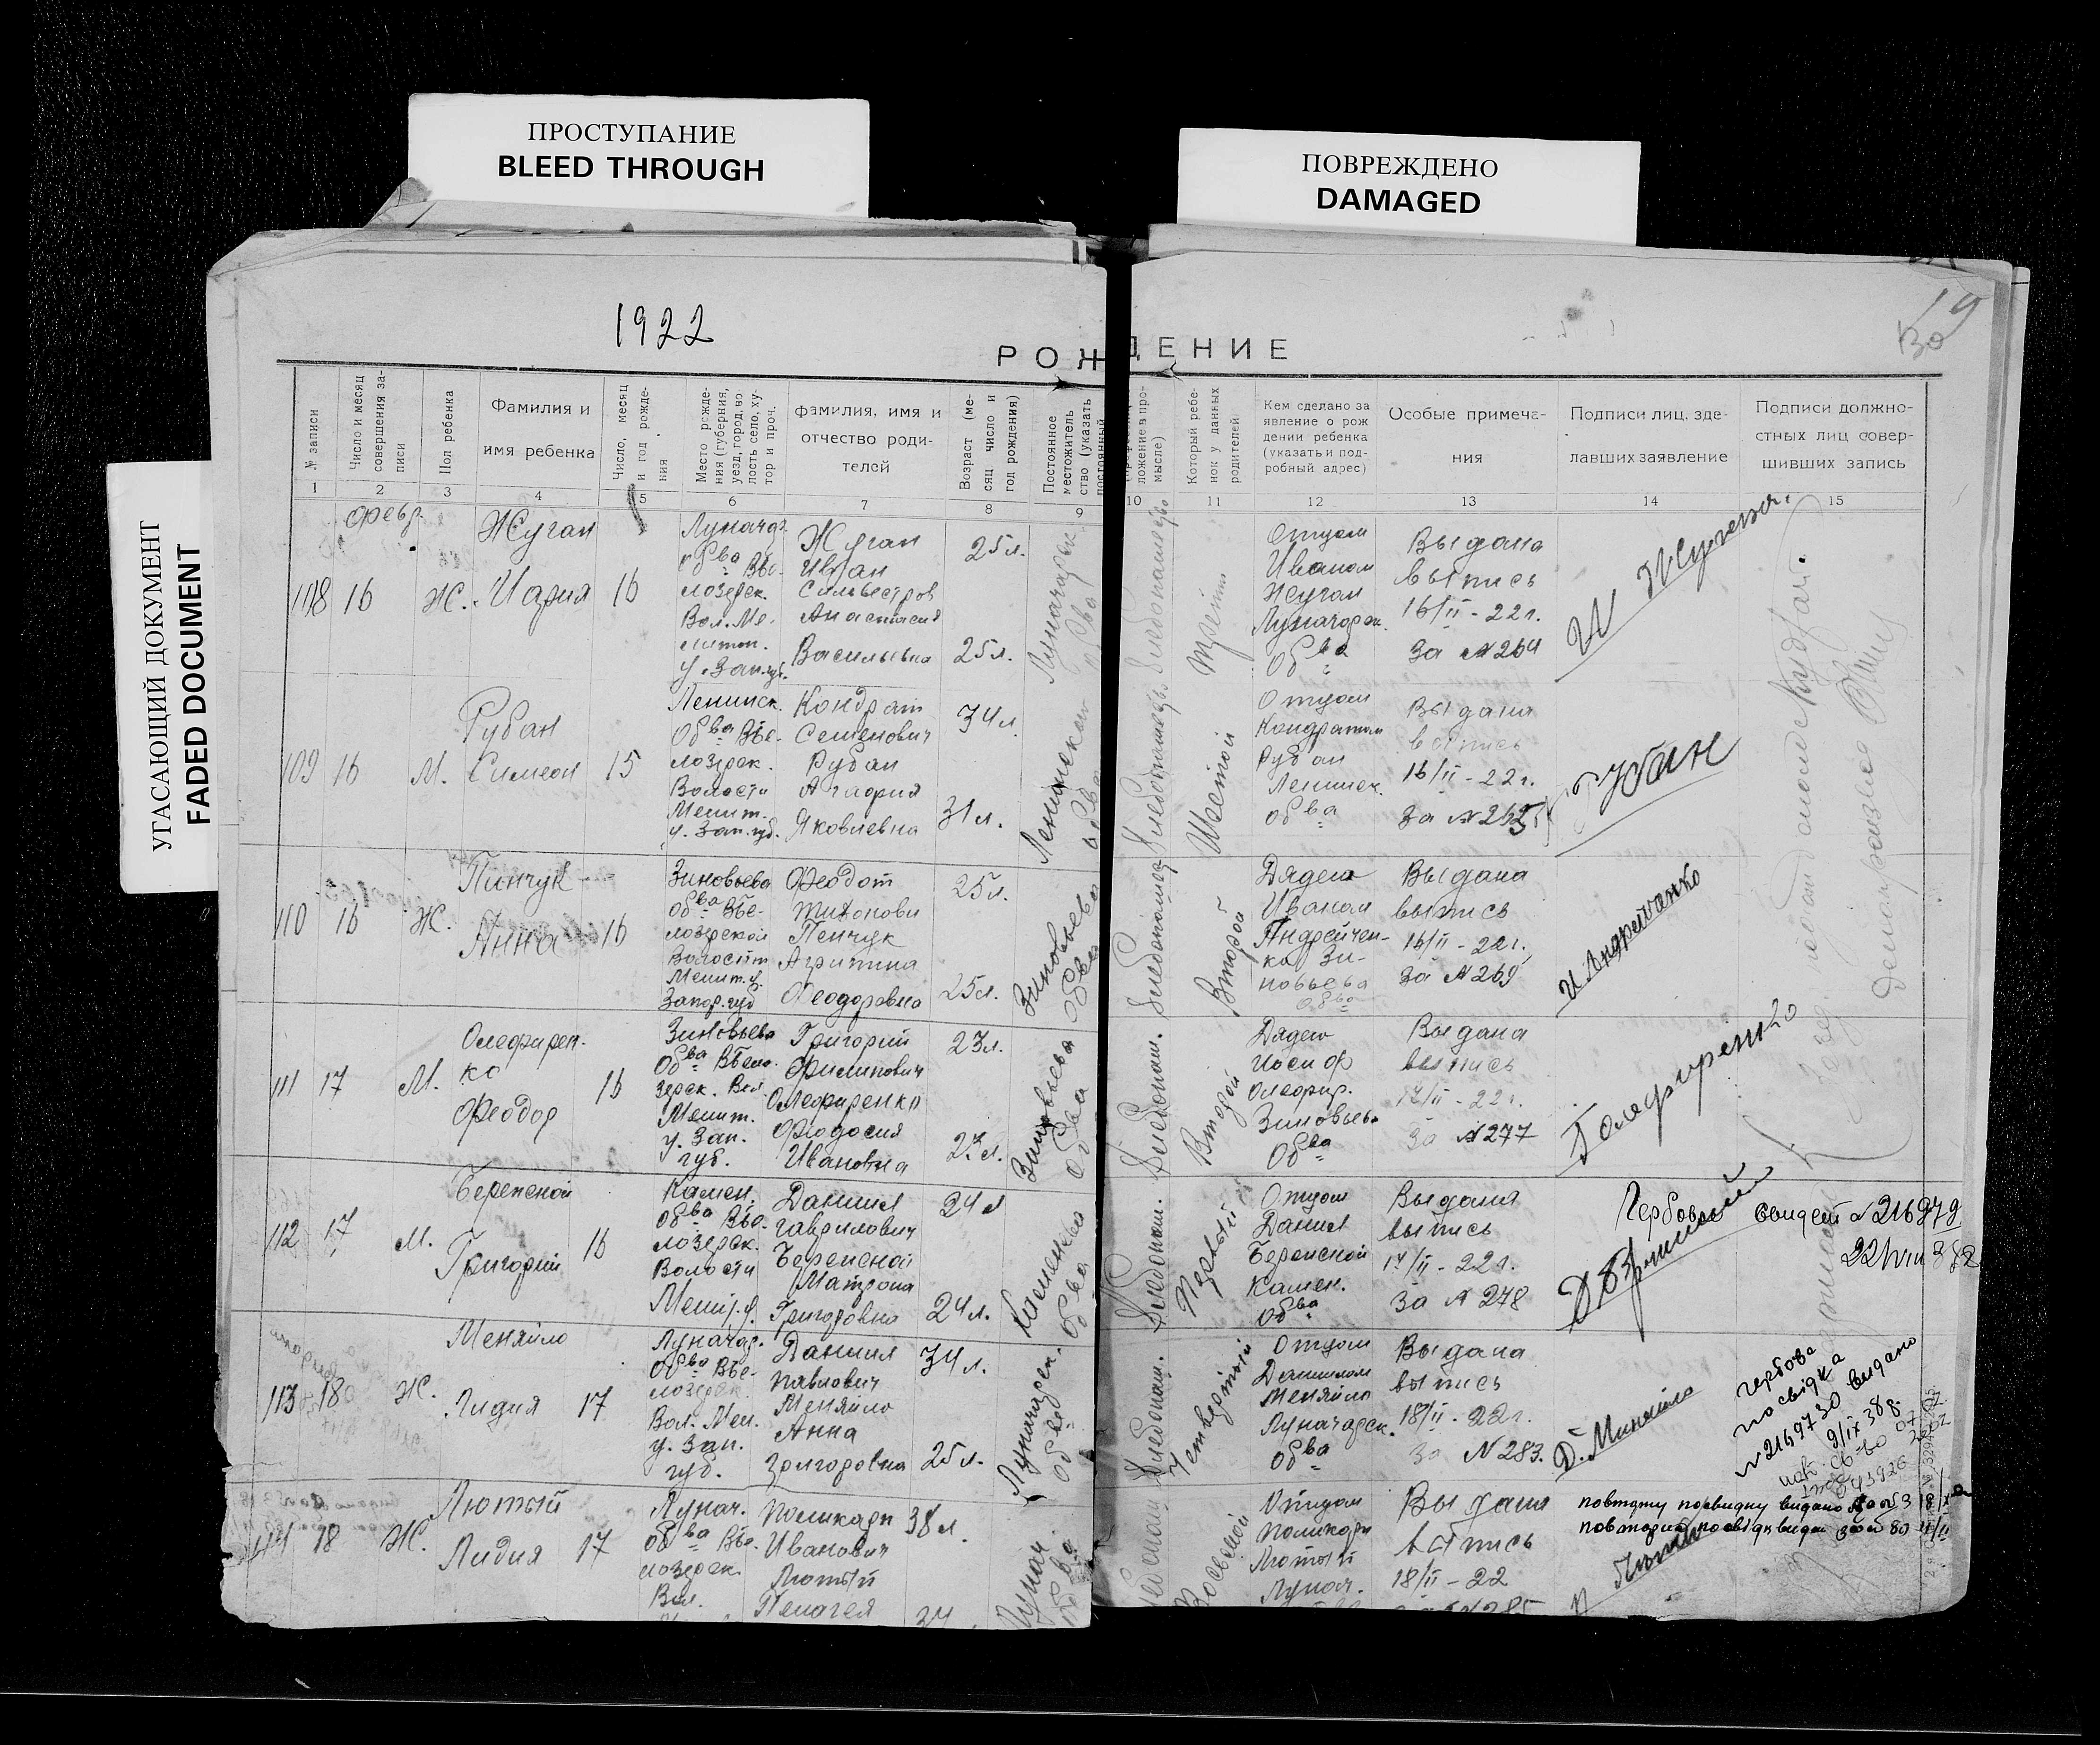 ПРОСТУПАНИЕ
BLEED THROUGH
ПОВРЕЖДЕНО
DAMAGED
УГАСАЮЩИЙ ДОКУМЕНТ
FADED DOCUMENT
1922
19
РОЖДЕНИЕ
№ записи
Число и месяц
совершения за-
писи
Пол ребенка
Фамилия и
имя ребенка
Число, месяц
и год рожде-
ния
Место рожде-
ния (губерния,
уезд, город, во
лость село, ху-
тор и проч.
фамилия, имя и
отчество роди-
телей
Возраст (ме-
сяц число и
год рождения)
Постоянное
местожитель
ство (указать
постоянный
ложение в про-
мысле)
Который ребе-
нок у данных
родителей
Кем сделано за
явление о рож
дении ребенка
(указать и под-
робный адрес)
Особые примеча-
ния
Подписи лиц, зде-
лавших заявление
Подписи должно-
стных лиц совер-
шивших запись
1 2 3 4 5 6 7 8 9 10 11 12 13 14 15
февр.
108 16 Ж.
Жуган
Мария
16
Луначар.
обва Вбе-
лозерск.
Вол. Ме-
литоп.
у. Зап. губ.
Жуган
Иван
Сильвестров
Анастасия
Васильевна
25 л.
25 л.
Луначарск.
обва
Хлебопашество
Третий
Отцом
Иваном
Жуган
Луначарск.
Обва
Выдана
выпись
16/II - 22 г.
За № 264
И Жуган
109 16 М.
Рубан
Симеон
15
Ленинск.
Обва Вбе-
лозерск.
Волости
Мелит.
у. Зап. губ.
Кондрат
Семенович
Рубан
Агафия
Яковлевна
34 л.
31 л.
Ленинское
обва
Хлебопашество
Шестой
Отцом
Кондратом
Рубан
Ленинск.
обва
Выдана
выпись
16/II - 22 г.
За № 265
Рубан
110 16 Ж.
Пинчук
Анна
16
Зиновьева
обва Вбе-
лозерской
Волости
Мелит. у.
Запор. губ
Феодот
Тихонови
Пенчук
Агрипина
Феодоровна
25 л.
25 л.
Зиновьева
Обва
Хлебопашест.
Второй
Дядею
Иваном
Андрейчен-
ко Зи-
новьева
обва
Выдана
выпись
16/II - 22 г.
За № 269
И Андрейченко
111 17 М.
Олефирен-
ко
Феодор
16
Зиновьева
Обва Вбело-
зерск. Вол.
Мелит.
у. Зап.
губ.
Григорий
Филипович
Олефиренко
Феодосия
Ивановна
23 л.
23 л.
Зиновьева
обва
Хлебопаш.
Второй
Дядею
Иосиф
Олефир.
Зиновьева
Обва
Выдана
выпись
17/II - 22 г.
За № 277
112 17 М.
Береснай
Григорий
16
Камен.
Обва Вбе-
лозерск.
Волости
Мелит. у.
Даниил
Гаврилович
Матрона
Григоровна
24 л
24 л.
Каменка
обва
Хлебопаш.
Первый
Отцом
Даниил
Камен.
Обва
Выдана
выпись
17/II - 22 г.
За № 278
№ 216979
113 18 Ж.
Меняйло
Лидия
17
Луначар.
Обва Вбе-
лозерск.
Вол. Мел.
у. Зап.
губ.
Даниил
Павлович
Меняйло
Анна
Григоровна
34 л.
25 л.
Луначарск.
Обва
Хлебопаш.
Четвертый
Отцом
Даниилом
Меняйло
Луначарск.
Обва
Выдана
выпись
18/II - 22 г.
За № 283.
Д. Минайло
гербова
посвідка
№ 2169730 видано
9/IX 38 г.
114 18 Ж.
Лютый
Лидия
17
Лунач.
Обва Вбе-
лозерск.
Вол.
Поликарп
Иванович
Лютый
Пелагея
38 л.
34
Лунач.
обва
Хлебопаш.
Восьмой
Отцом
Поликарп
Лютый
Лунач.
Выдана
выпись
18/II - 22
За № 285
П Лютый